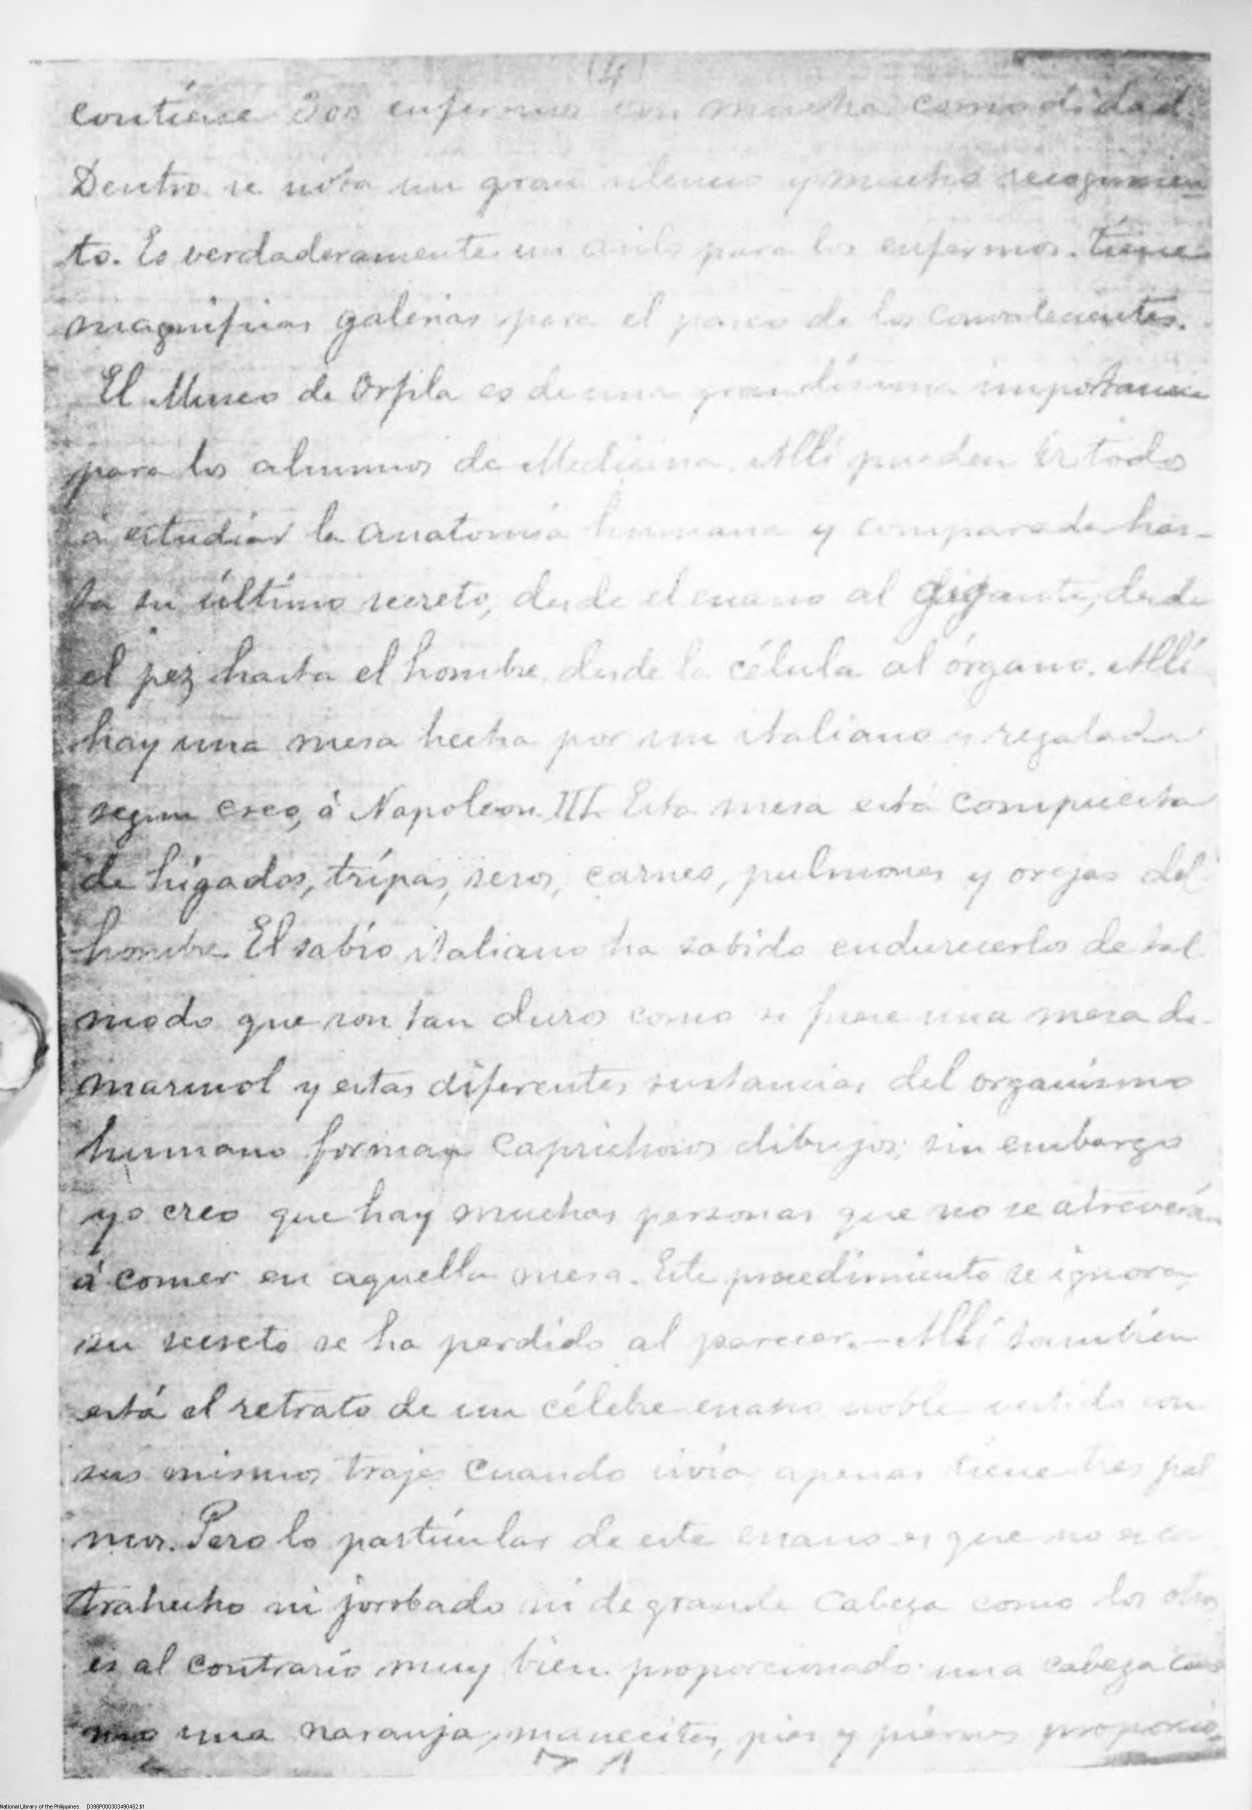 (4)
contiene 300 enfermos con mucha comodidad.
Dentro se nota un gran silencio y mucho recogimien-
to. Es verdaderamente un asilo para los enfermos. tiene
magnificas galerias para el paseo de los convalecientes.
El Museo de Orfila es de una grandísima importancia
para los alumnos de Medicina. Allí pueden ir todos
á estudiar la anatomía humana y comparada has-
ta su último secreto, desde el enano al gigante, desde
el pez hasta el hombre, desde la célula al órgano. Allí
hay una mesa hecha por un italiano y regalada
segun creo, á Napoleon III. Esta mesa está compuesta
de hígados, trípas, sesos, carnes, pulmones y orejas del
hombre. El sabio italiano ha sabido endurecerlos de tal
modo que son tan duros como si fuese una mesa de
marmol y estas diferentes sustancias del organismo
humano forman caprichosos dibujos; sin embargo
yo creo que hay muchas personas que no se atreverán
á comer en aquella mesa. Este procedimiento se ignora,
su secreto se ha perdido al parecer.—Allí tambien
está el retrato de un célebre enano noble vestido con
sus mismos trajes cuando vivía, apenas tiene tres pal
mos. Pero lo partícular de este enano es que no es con
trahecho ni jorobado ni de grande cabeza como los otros
es al contrario muy bien proporcionado: una cabeza co
mo una naranja, manecitas, pies y piernas proporcio-
National Library of the Philippines. D396P00030349C462.tif